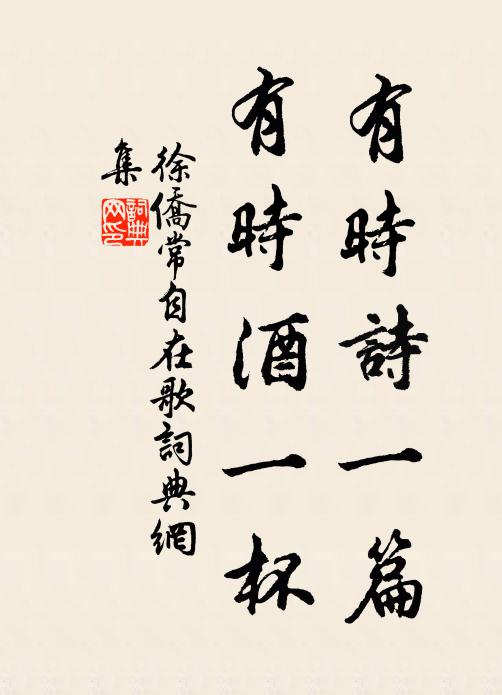 有時詩一篇
有時酒一杯
徐僑常自在歌詞典網
集
詞典
网印